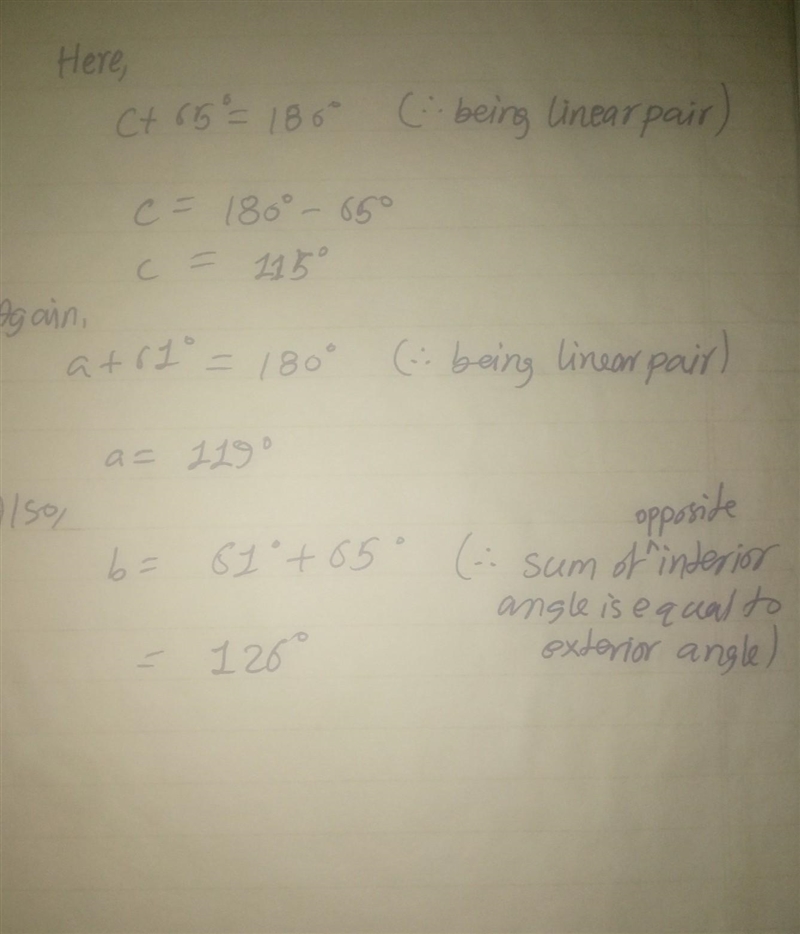 Here,
c + 65° = 180° (∵ being linear pair)
c = 180° - 65°
c = 115°
Again,
a + 61° = 180° (∴ being linear pair)
a = 119°
Also,
b = 61° + 65° (∴ sum of ^ opposite interior
angle is equal to
= 126° exterior angle)